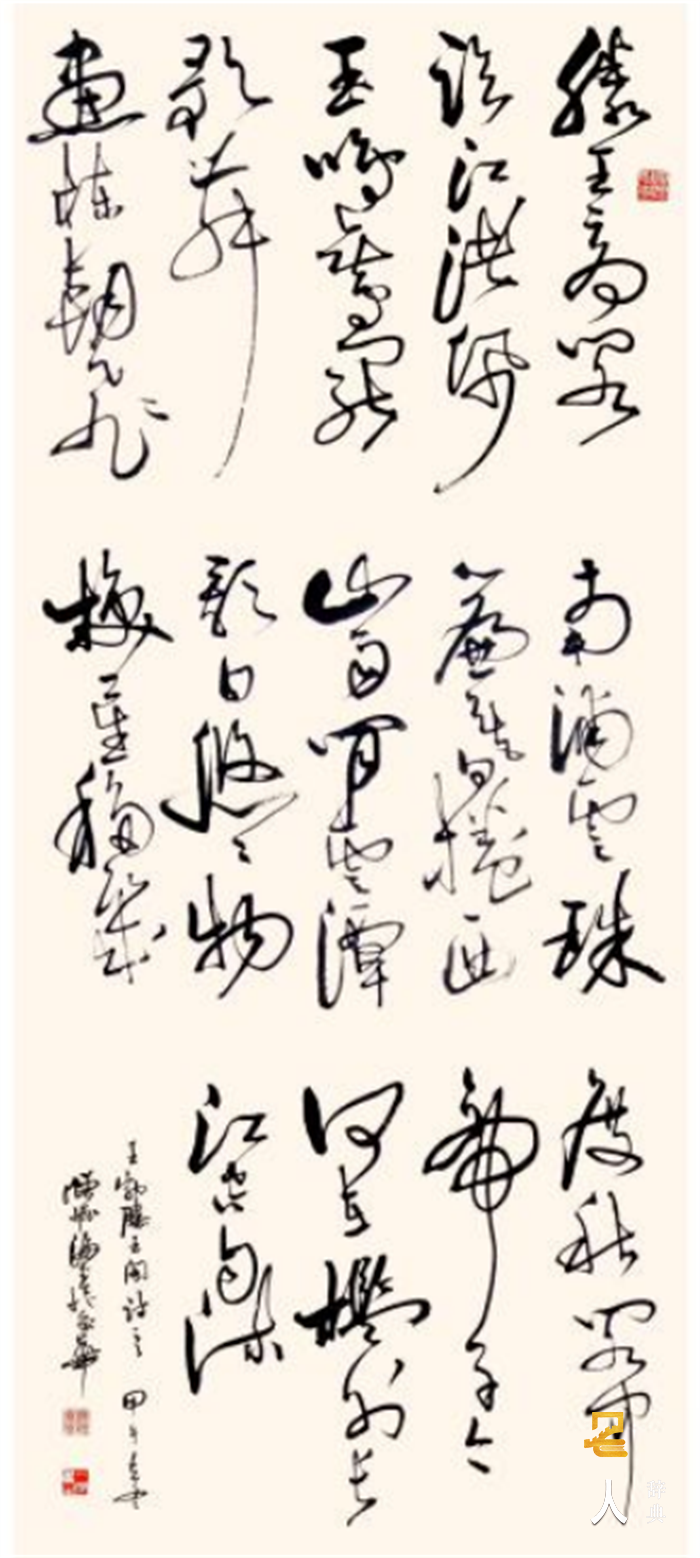 滕王高閣
臨江渚佩
玉鳴鸞罷
歌舞
畫棟朝飛
南浦雲珠
簾暮捲西
山雨閒雲潭
影日悠々物
換星移幾
度秋閣中
帝子今
何在檻外長
江空自流
王勃滕王閣詩一 甲午春
人
辞典